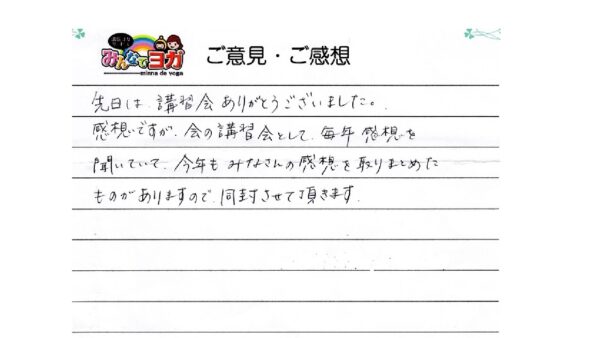 みんなでヨガ
minna de yoga
ご意見・ご感想
先日は、講習会ありがとうございました。
感想ですが、会の講習会として、毎年感想を
聞いていて、今年もみなさんの感想を取りまとめた
ものがありますので、同封させて頂きます。